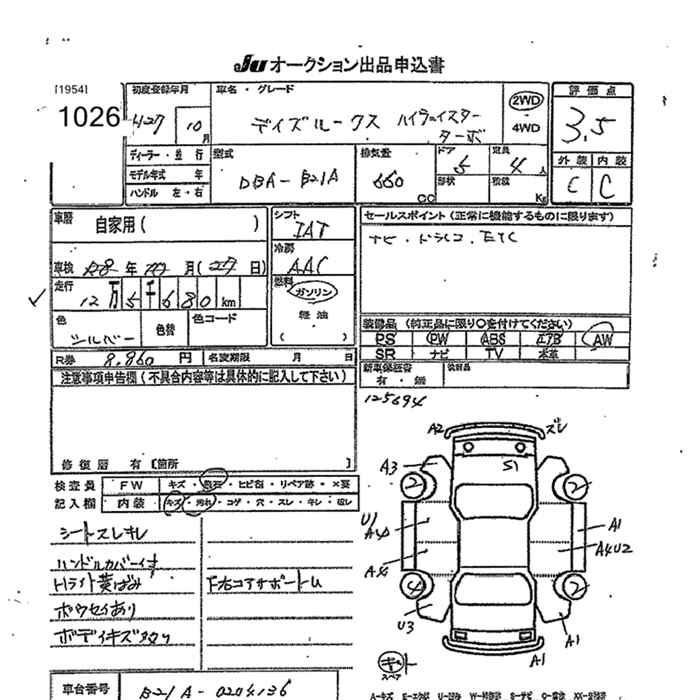 JU オークション出品申込書
[1954]
1026
初度登録年月
H27 10月
車名・グレード
デイズルークス ハイウェイスター
ターボ
2WD
4WD
評価点
3.5
外装 内装
C C
ディーラー・並行
モデル年式 年
ハンドル 左・右
型式
DBA-B21A
排気量
660 cc
ドア
5
形状
定員
4人
積載
Kg
車歴
自家用( )
シフト
IAT
冷房
AAC
燃料
ガソリン
軽油
( )
セールスポイント(正常に機能するものに限ります)
ナビ・ドラレコ.ETC
車検 R8年10月(27日)
走行
12万5千680km
色
シルバー
色替
色コード
装備品(純正品に限り○を付けてください)
PS PW ABS エアB AW
SR ナビ TV 本革
R券 8,960円
名変期限 月 日
新車保証書
有・無
注意事項申告欄(不具合内容等は具体的に記入して下さい)
125694
修復歴 有[箇所 ]
検査員 FW キズ・飛石・ヒビ割・リペア跡・×要
記入欄 内装 キズ・汚れ・コゲ・穴・スレ・キレ・破レ
シートスレキレ
ハンドルカバー付
Hライト黄ばみ 下右コアサポートU
ボウセイあり
ボディキズ
A2 ズレ
A3 S1
2 2
U1
A1
A4U2
4 2
U3
A1
A1
キ
スペア
車台番号 B21A-0204136